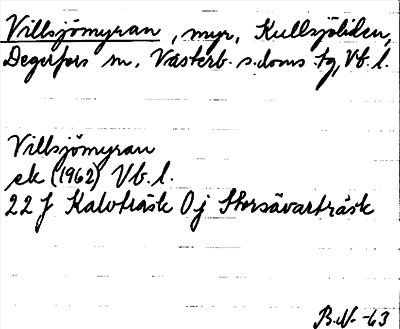 Villsjömyran, myr, Kullsjöliden,
Degerfors sn, Västerb. s. doms. tg, Vb. l.
Villsjömyran
ek (1962) Vb. l.
22 J Kalvträsk 0j Storsävarträsk
B.N. -63